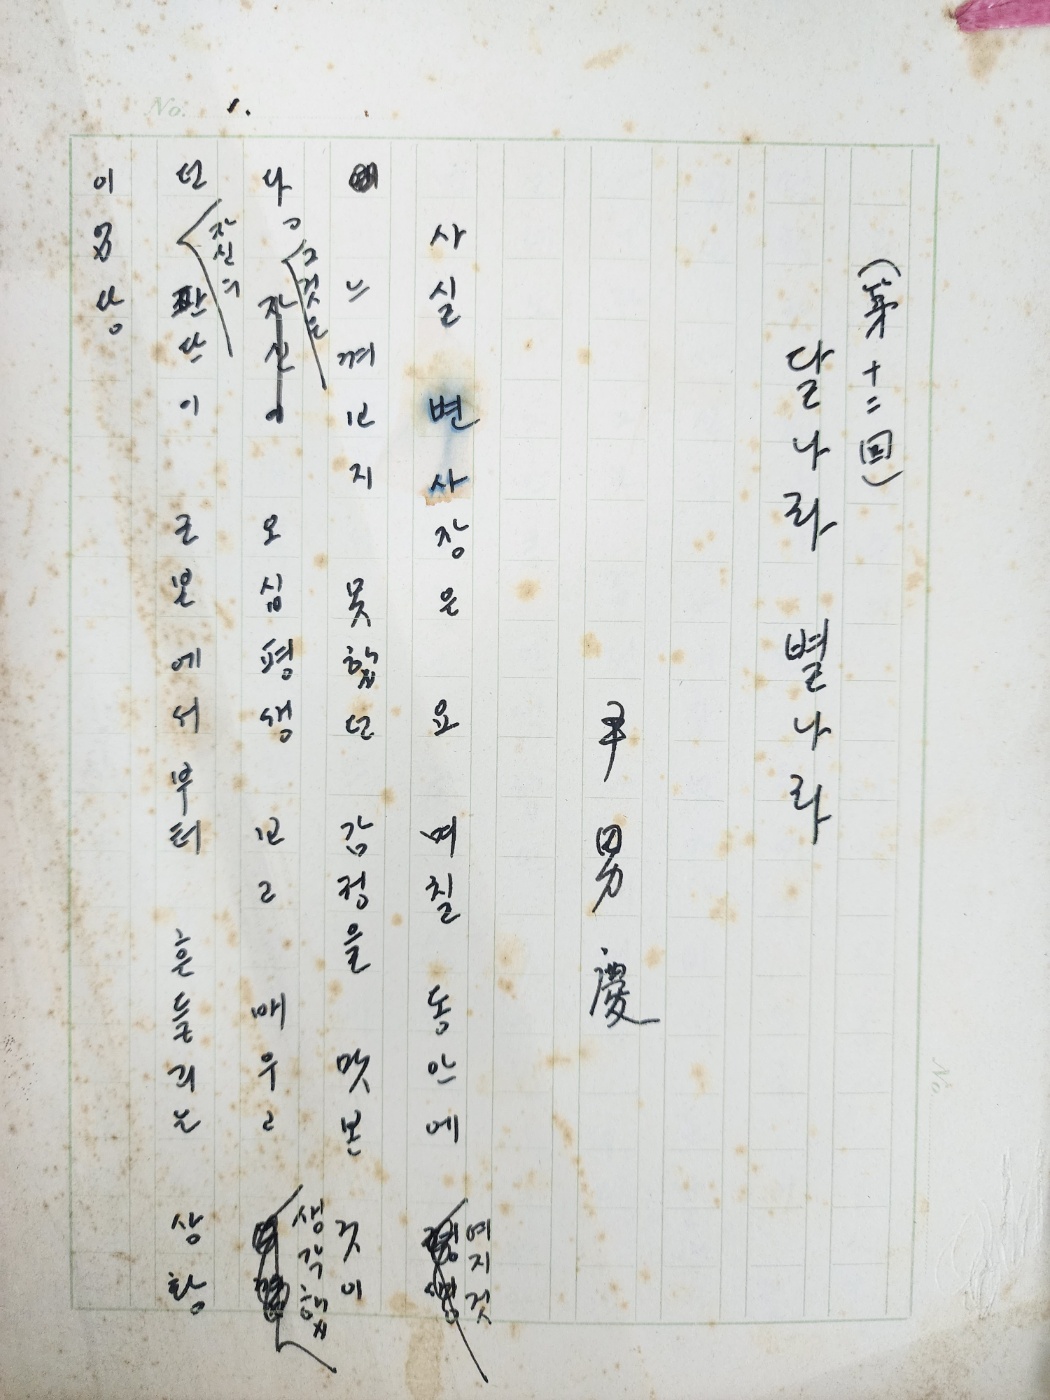 No. 1.
(第十二回)
달나라 별나라
尹男慶
사실 변사장은 요 며칠 동안에 여지껏
느껴보지 못했던 감정을 맛본 것이
나 그것은 오십평생 보고 매우고 생각했
던 자신의 판단이 근본에서부터 흔들리는 상황
이 상
No.